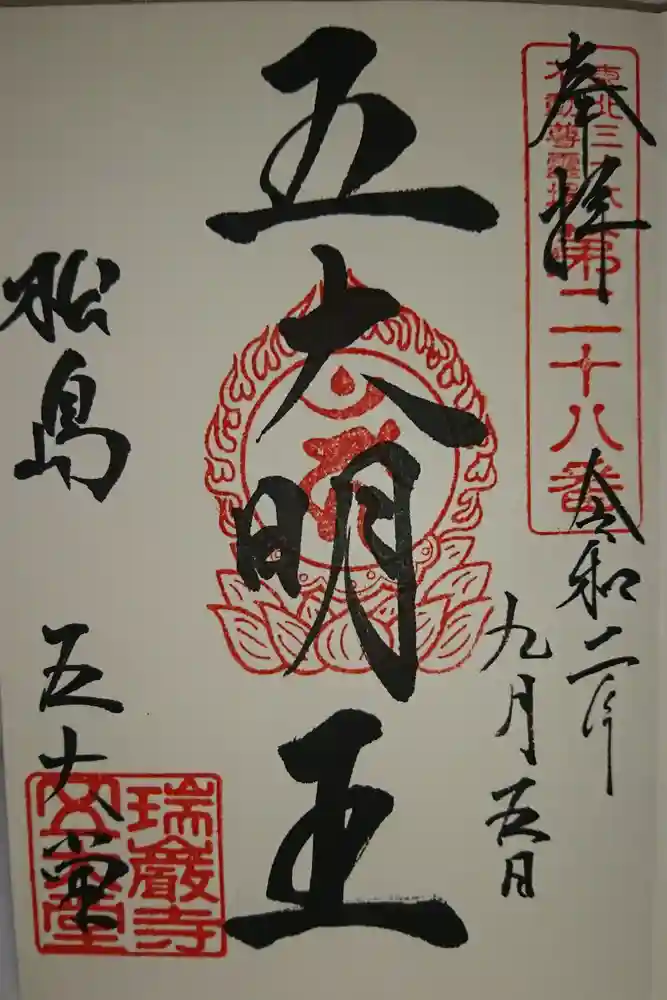 奉拝
東北三十六
不動尊霊場
第二十八番
令和二年
九月五日
五大明王
松島
五大堂
瑞巖寺
五大堂